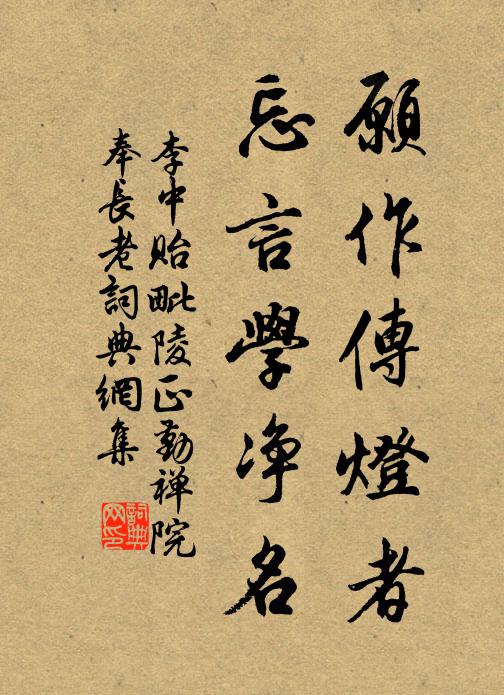 願作傳燈者
忘言學净名
李中貽毗陵正勤禪院
奉長老詞典網集
詞典
网印